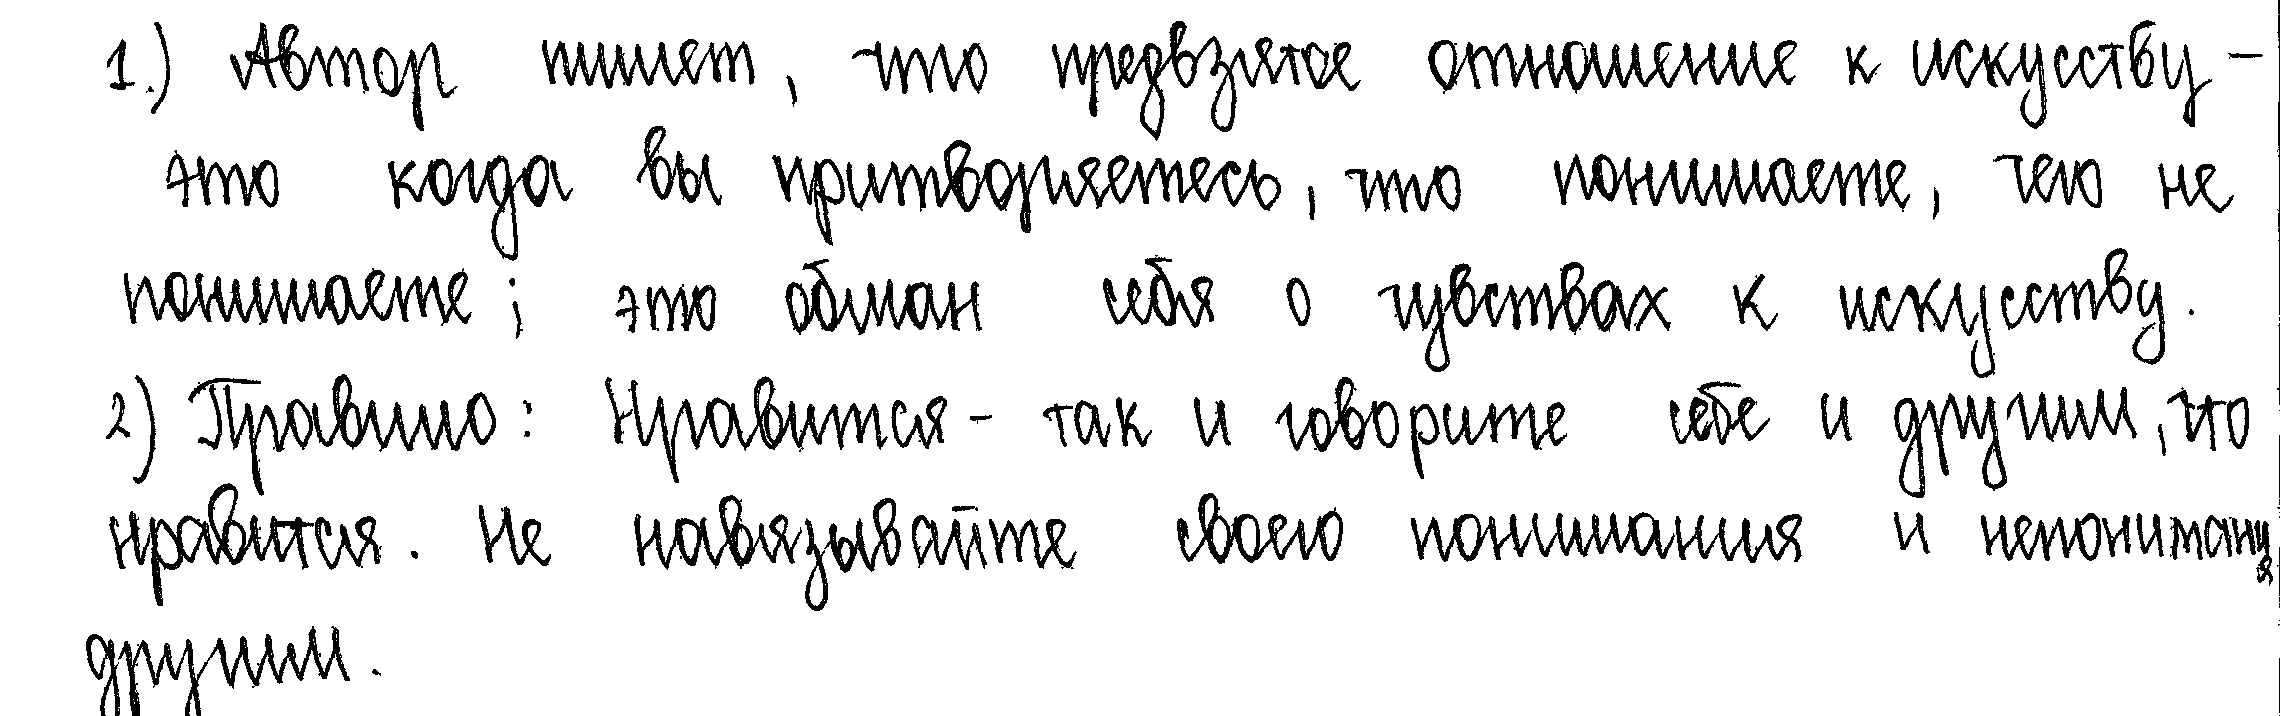 1.) Автор пишет, что предвзятое отношение к искусству -
это когда вы притворяетесь, что понимаете, чего не
понимаете; это обман себя о чувствах к искусству.
2) Правило: Нравится - так и говорите себе и другим, что
нравится. Не навязывайте своего понимания и непонимания
другим.